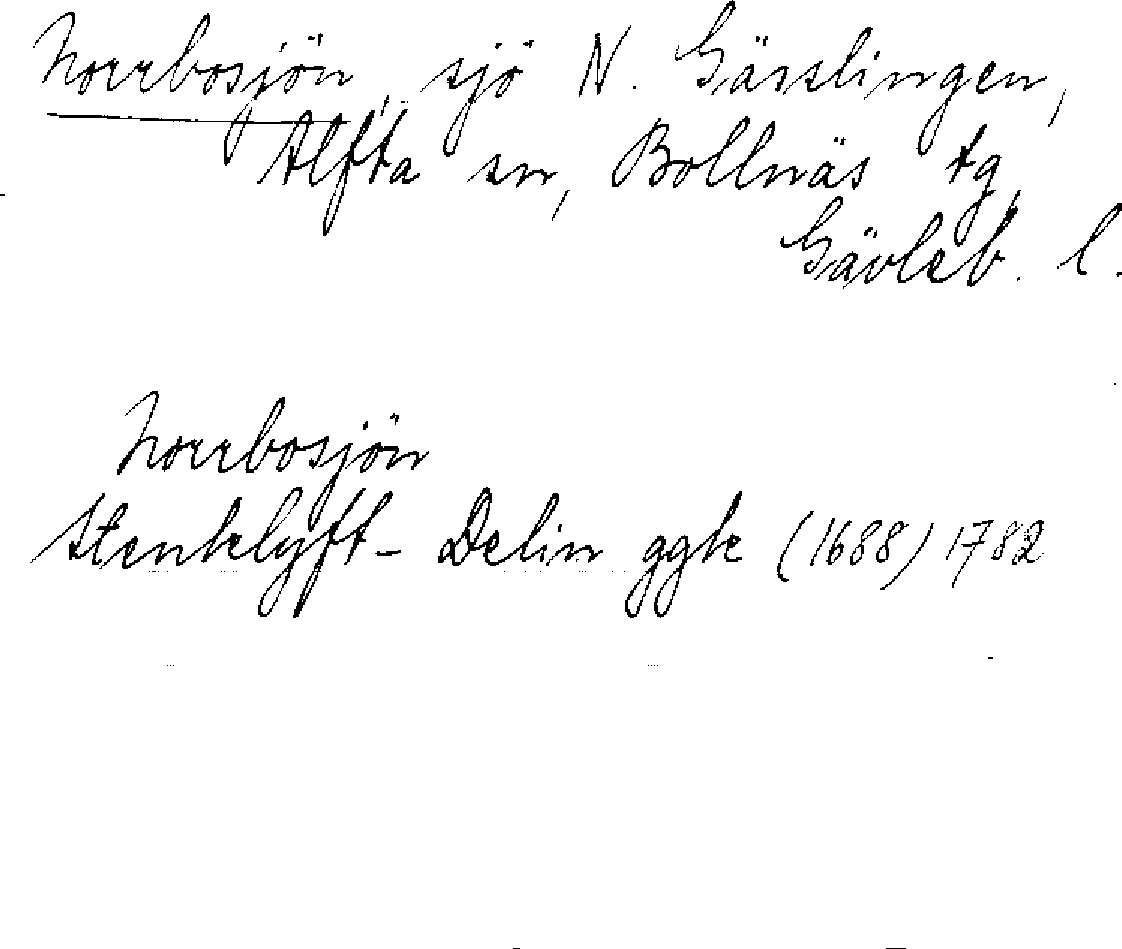 Norrbosjön, sjö N. Gässlingen,
Alfta sn, Bollnäs tg,
Gävleb. l.
Norrbosjön
Stenklyft- Delin ggk (1688) 1782